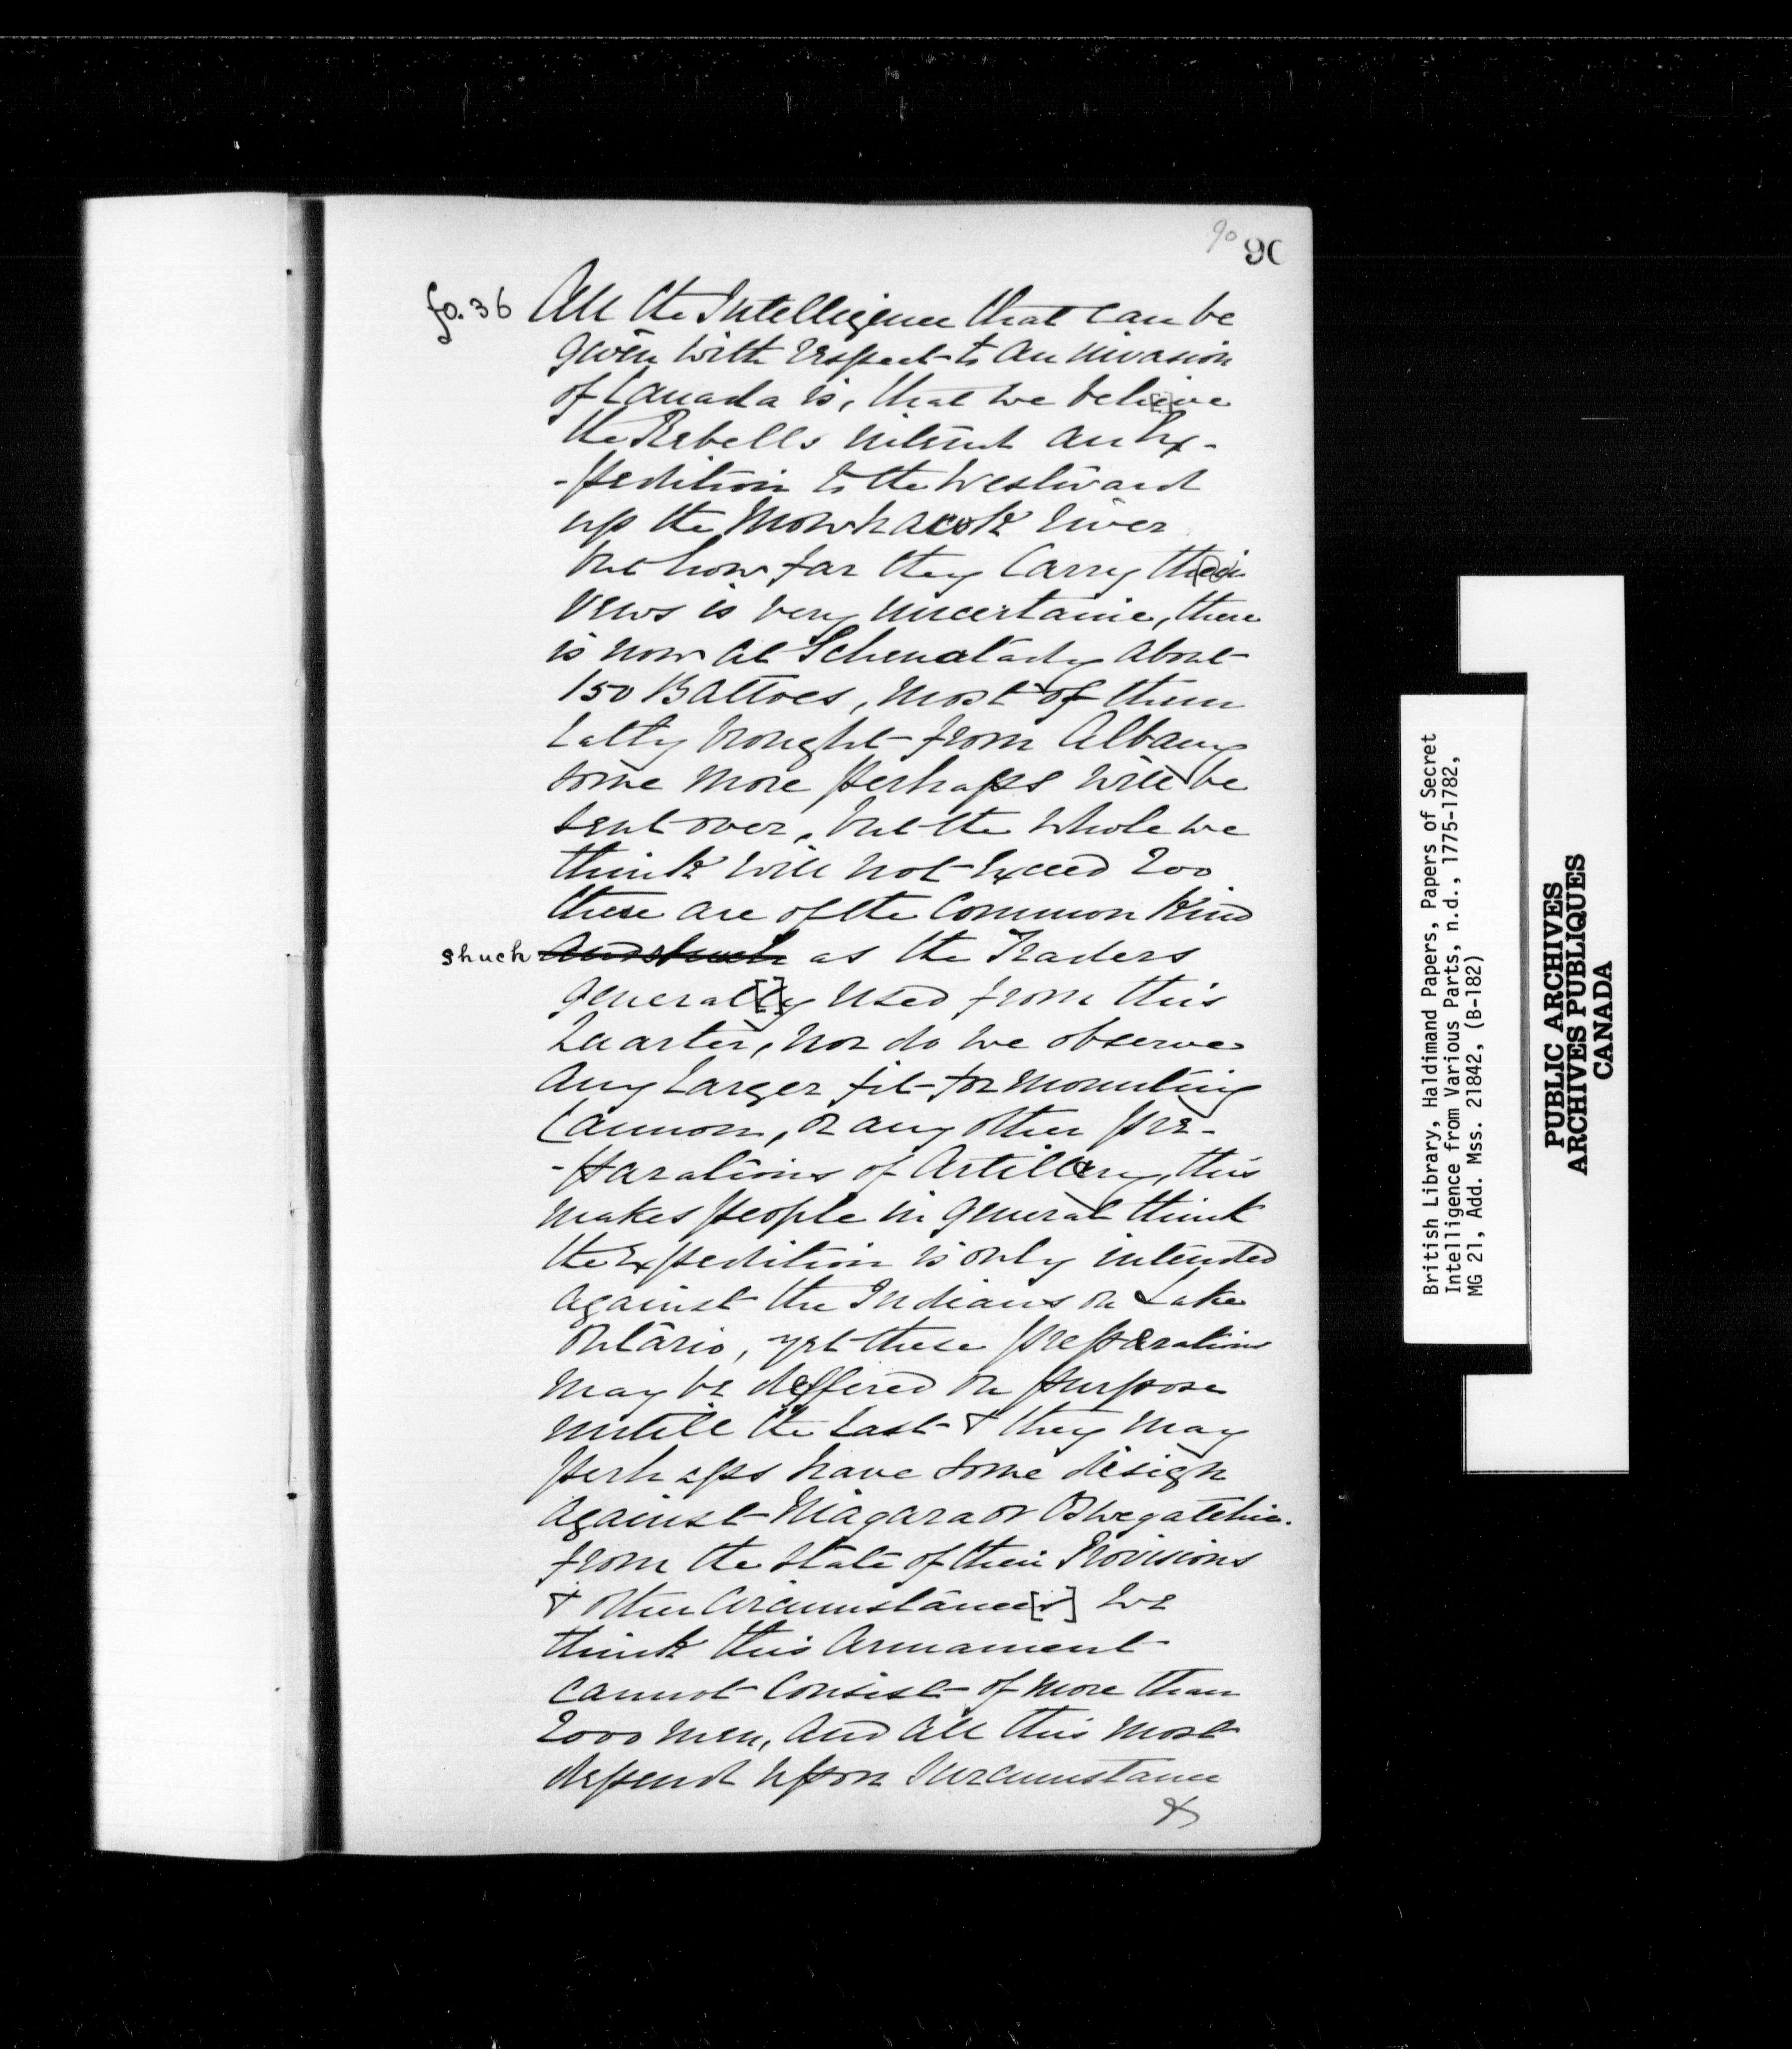 90 90
fo. 36 All the Intelligence that can be
given with respect to an invasion
of Canada is, that we believe
the Rebells intent an Ex-
-pedition to the Westward
up the Mowhawk river
but how far they Carry their
Vews is very uncertaine, there
is now at Schenatady about
150 Battoes, most of them
Latly brought from Albany
some more perhaps will be
sent over, but the whole we
think will not Exceed 200
these are of the Common Kind
shuch and shuch as the Traders
general[l]y used from this
Quarter, nor do we observe
any Larger fit for mounting
Cannon, or any other pre-
-parations of Artillery, this
makes people in general think
the Expedition is only intended
against the Indians on Lake
Ontario, yet these preperations
may be deffered on purpose
untill the Last & they may
perhaps have some design
against Niagara or Oswegatchie.
from the state of their Provisions
& other Circumstance[s] we
think this Armament
cannot Consist of more than
2000 men, and all this most
depend upon Surcumstance
&
British Library, Haldimand Papers, Papers of Secret
Intelligence from Various Parts, n.d., 1775-1782,
MG 21, Add. Mss. 21842, (B-182)
PUBLIC ARCHIVES
ARCHIVES PUBLIQUES
CANADA